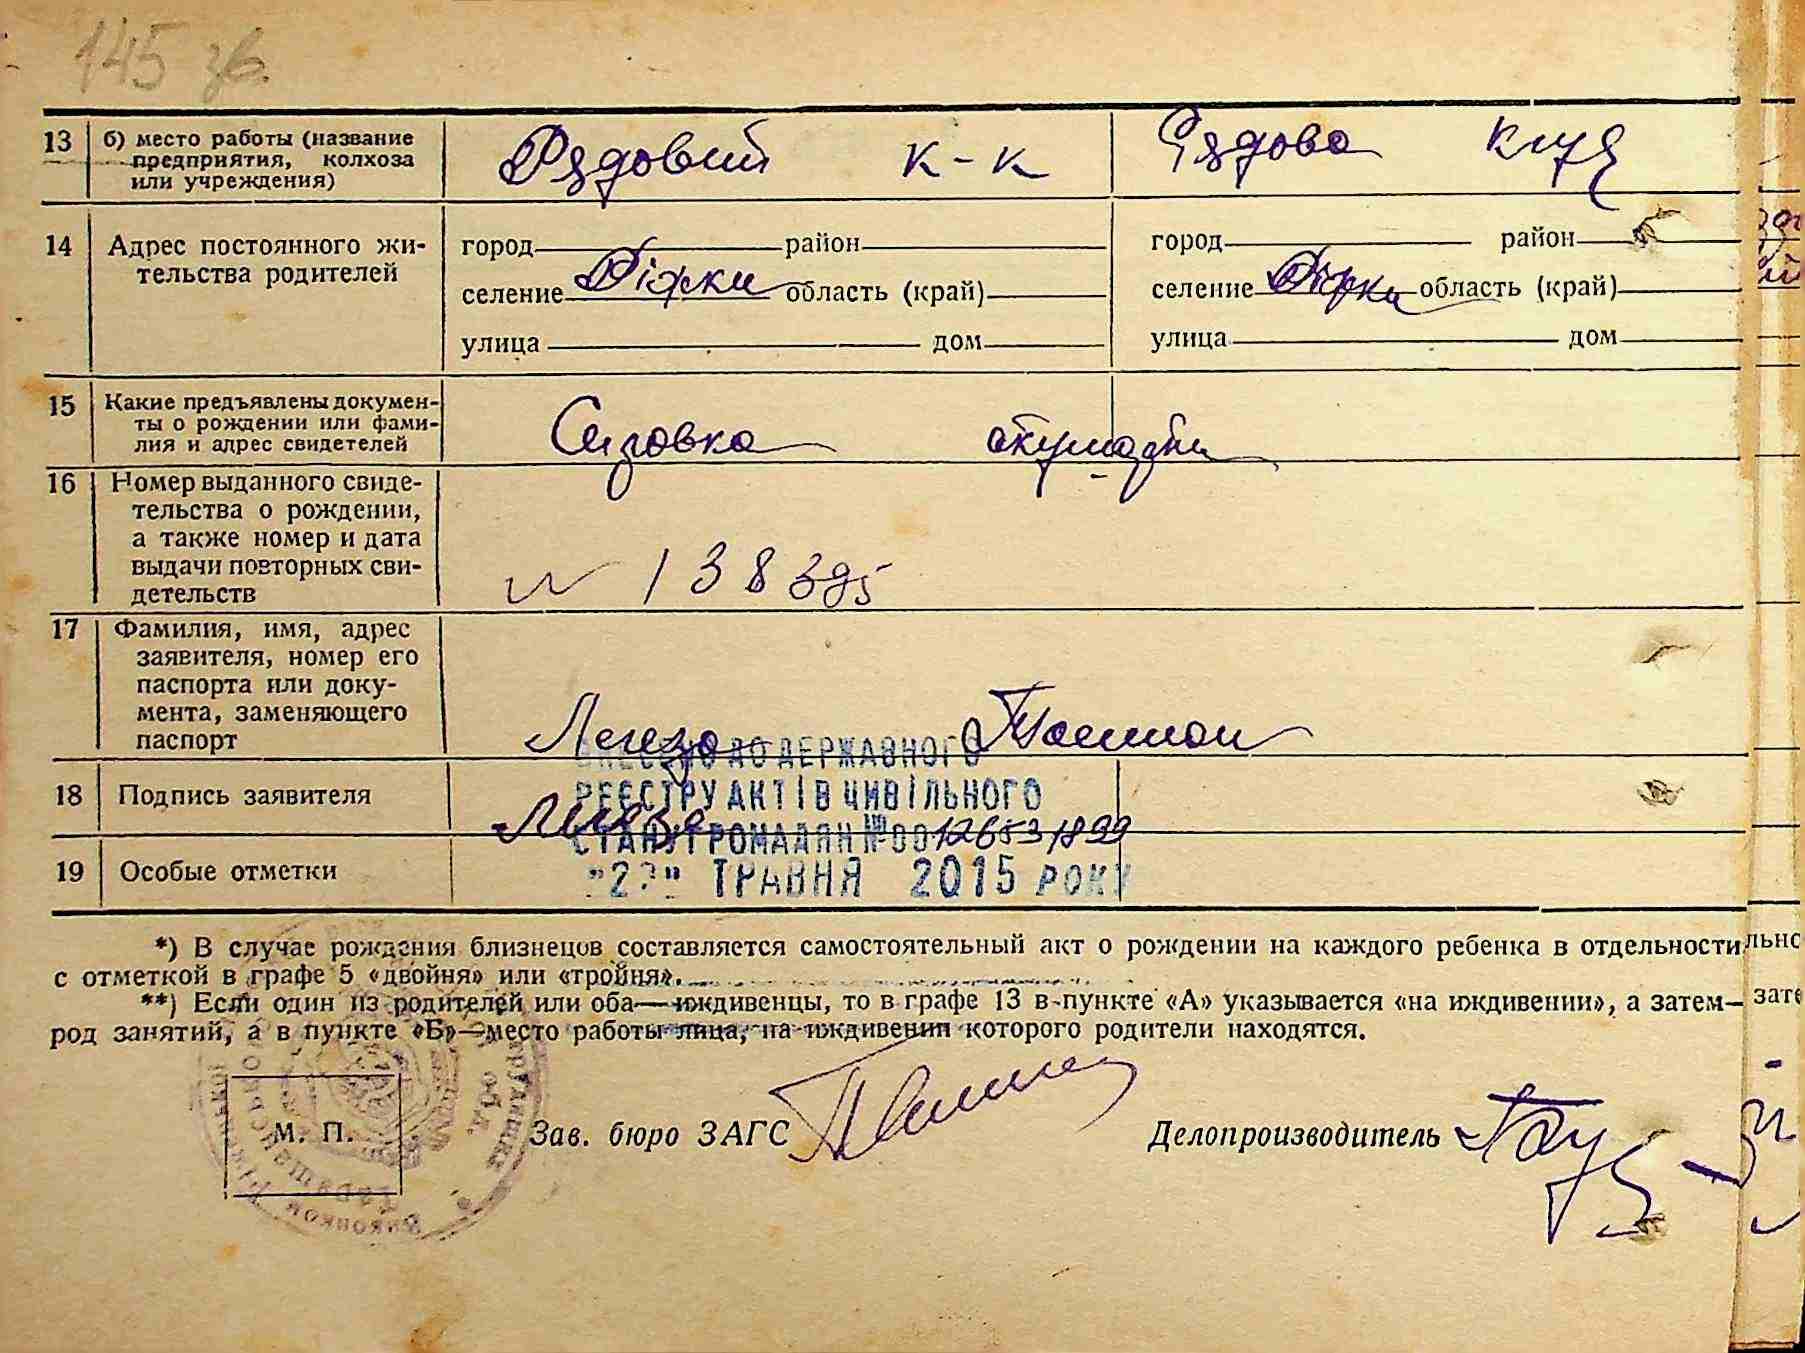 145 зв.
13 б) место работы (название предприятия, колхоза или учреждения) Рядовий к-к Рядова
14 Адрес постоянного жительства родителей
город район город район
селение Ріжки область (край) селение Ріжки область (край)
улица дом улица дом
15 Какие предъявлены документы о рождении или фамилия и адрес свидетелей
16 Номер выданного свидетельства о рождении, а также номер и дата выдачи повторных свидетельств № 138395
17 Фамилия, имя, адрес заявителя, номер его паспорта или документа, заменяющего паспорт Легеза
ВНЕСЕНО ДО ДЕРЖАВНОГО
РЕЄСТРУ АКТІВ ЦИВІЛЬНОГО
18 Подпись заявителя
СТАНУ ГРОМАДЯН № 00126531899
19 Особые отметки
ТРАВНЯ 2015 РОКУ
*) В случае рождения близнецов составляется самостоятельный акт о рождении на каждого ребенка в отдельности
с отметкой в графе 5 «двойня» или «тройня».
**) Если один из родителей или оба—иждивенцы, то в графе 13 в пункте «А» указывается «на иждивении», а затем—
род занятий, а в пункте «Б»—место работы лица, на иждивении которого родители находятся.
М. П. Зав. бюро ЗАГС Делопроизводитель